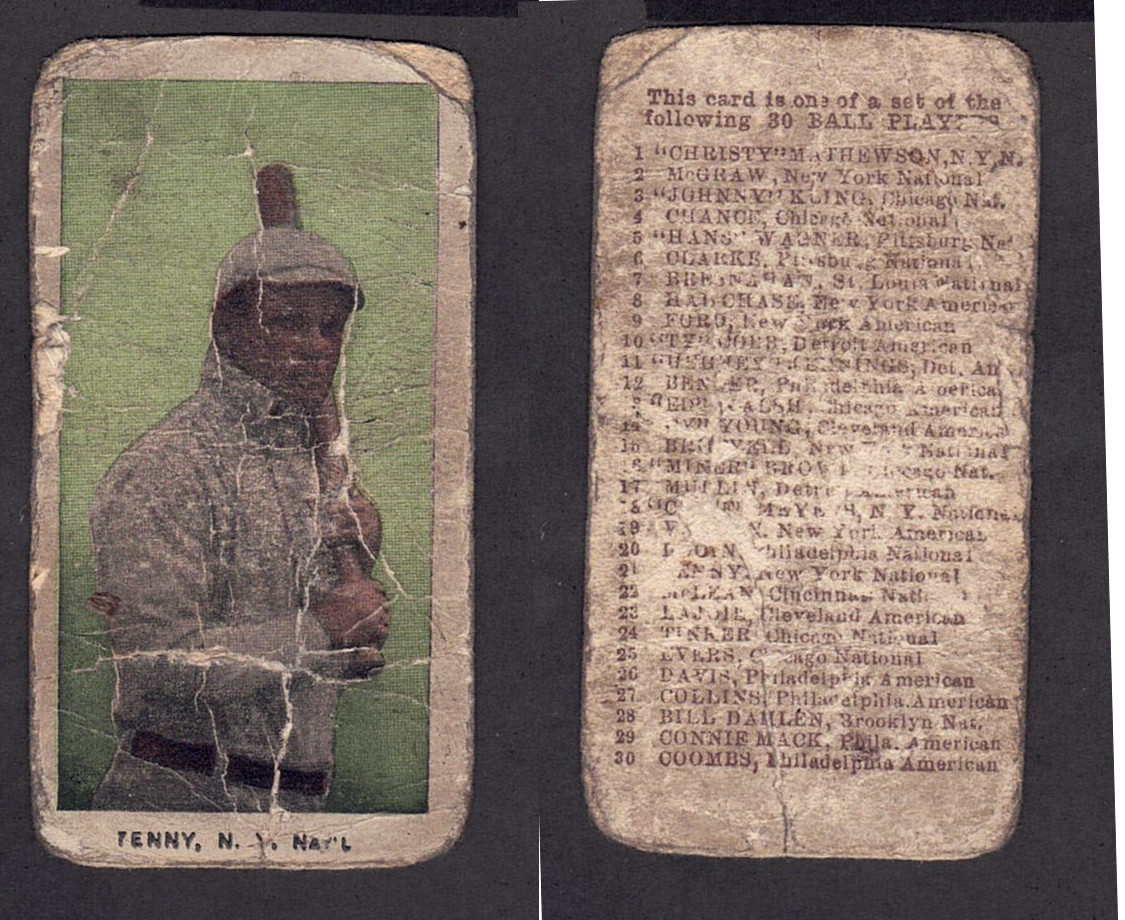 TENNY, N. Y. NAT'L
This card is one of a set of the
following 30 BALL PLAYERS
1 "CHRISTY" MATHEWSON, N.Y.N.
2 McGRAW, New York National
3 "JOHNNY" KLING, Chicago Nat.
4 CHANCE, Chicago National
5 "HANS" WAGNER, Pittsburg Nat
6 CLARKE, Pittsburg National
7 BRESNAHAN, St. Louis National
8 HAL CHASE, New York American
9 FORD, New York American
10 "TY" COBB, Detroit American
11 JENNINGS, Det. Am
12 BENDER, Philadelphia America
"ED" WALSH, Chicago American
YOUNG, Cleveland American
15 New York National
16 "MINER" BROWN, Chicago Nat.
17 MULLIN, Detroit American
N. Y. National
19 New York American
20 Philadelphia National
21 TENNY, New York National
22 McLEAN, Cincinnati Natio
23 LAJOIE, Cleveland American
24 TINKER Chicago National
25 EVERS, Chicago National
26 DAVIS, Philadelphia American
27 COLLINS, Philadelphia. American
28 BILL DAHLEN, Brooklyn Nat.
29 CONNIE MACK, Phila. American
30 COOMBS, Philadelphia American